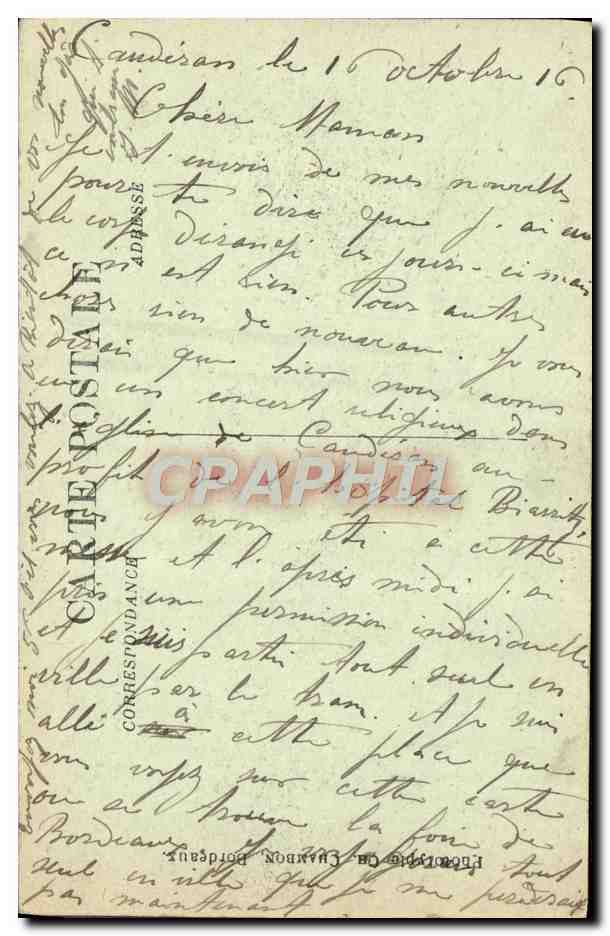 Caudéran le 16 octobre 16
Chère Maman
Je t'envois de mes nouvelles
pour te dire que j'ai eu
le corps dérangé ces jours-ci mais
ce n'est rien. Pour autres
choses rien de nouveau. Je vous
dirais que hier nous avons
eu un concert religieux dans
l'église de Caudéran au
profit de l'hôpital Biarritz
nous y avons été a cette
messe et l'après midi j'ai
pris une permission individuelle
et je suis partir tout seul en
ville par le tram. Et je suis
allé à cette place que
vous voyez sur cette carte
ou se trouve la foire de
Bordeaux. Je
tout
seul en ville que je me perdrais
pas maintenant
a bientôt de vos nouvelles
ton fils
qui t'
CARTE POSTALE
CORRESPONDANCE
ADRESSE
Phototypie CH. CHAMBON, Bordeaux.
CPAPHIL